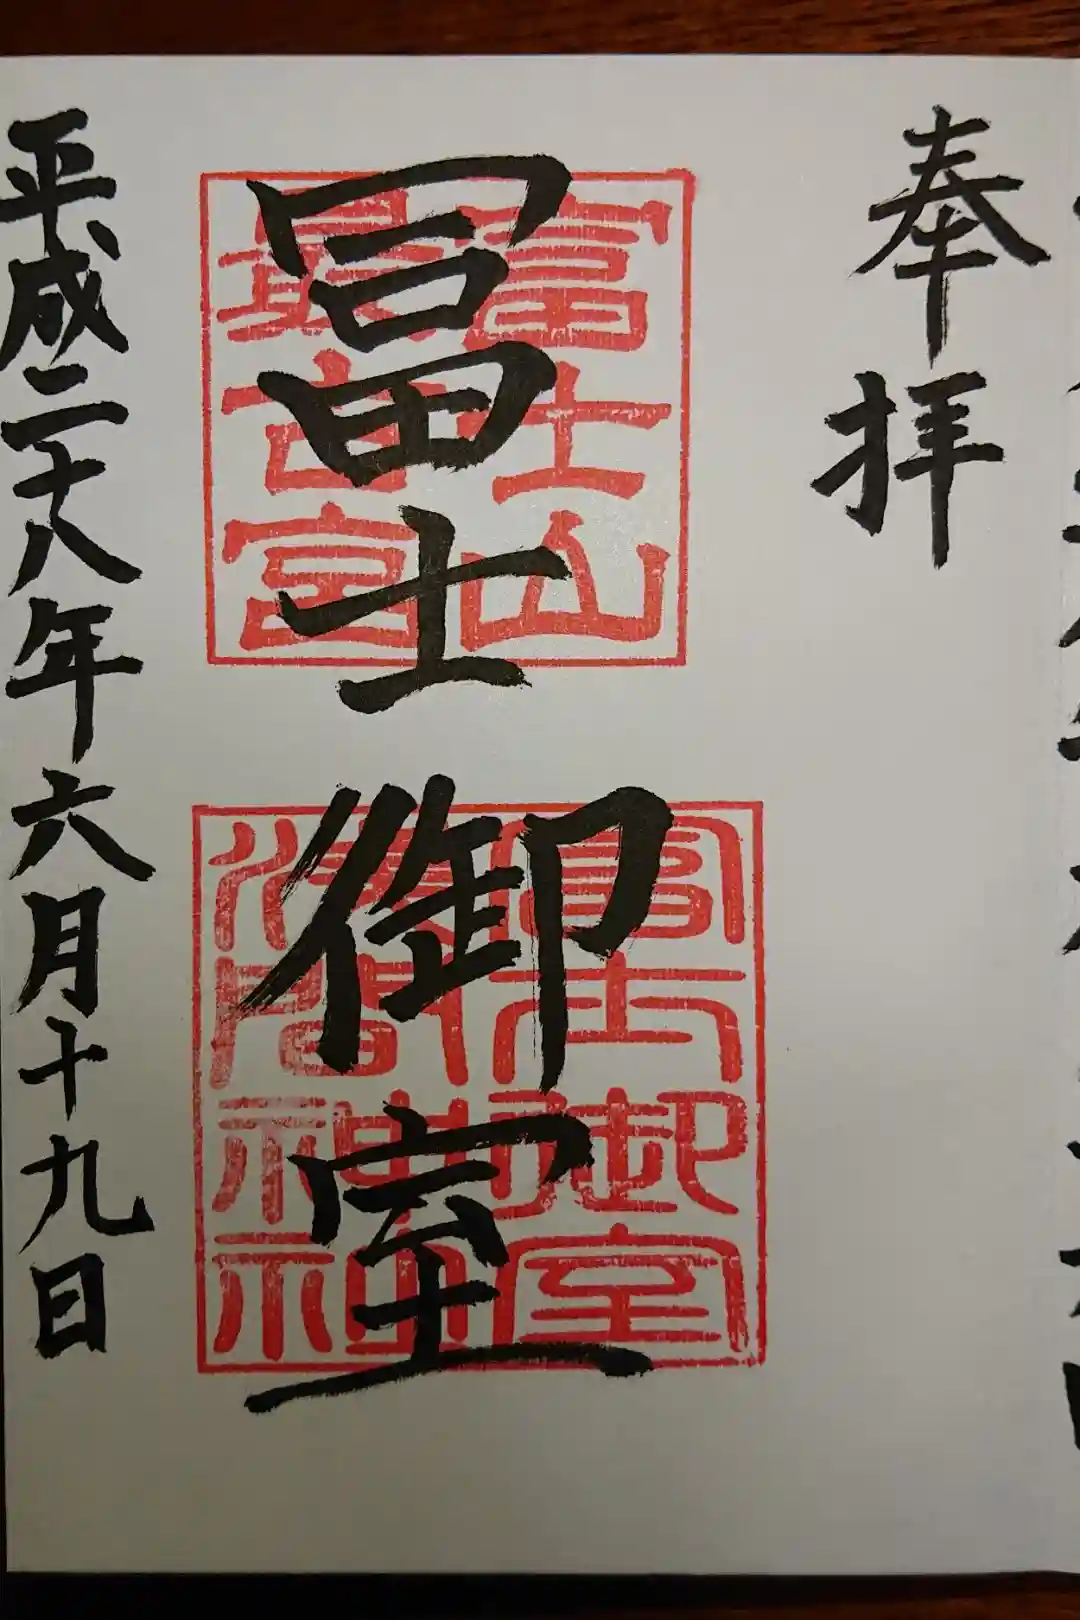 奉拝
冨士御室
冨士山
最古宮
冨士御室
淺間神社
平成二十八年六月十九日